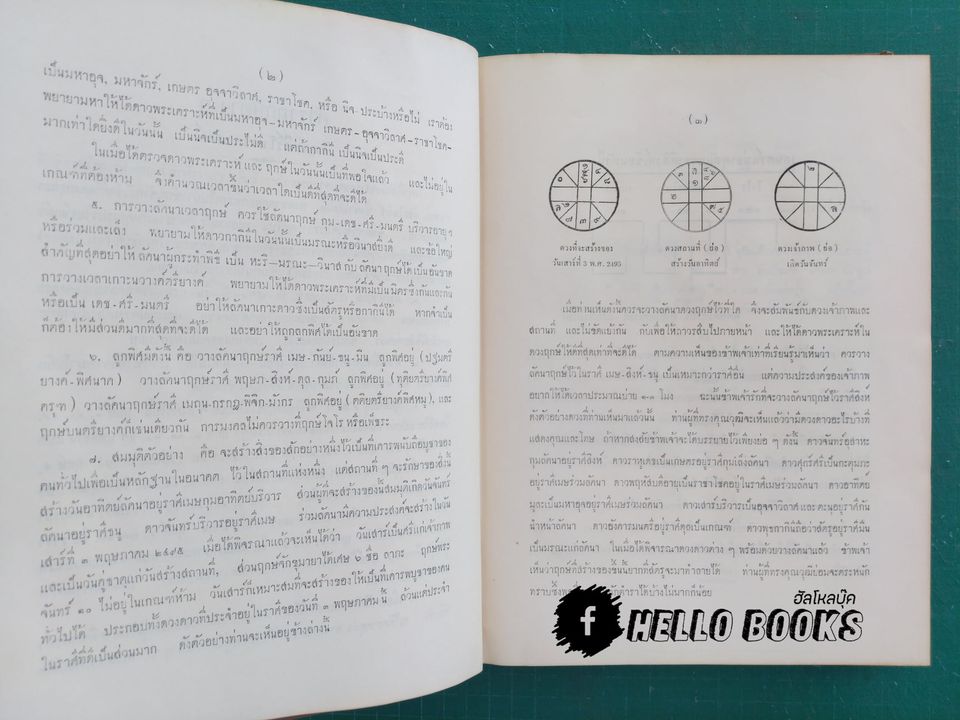 (๒)
เป็นมหาอุจ, มหาจักร์, เกษตร อุจจาวิลาศ, ราชาโชค, หรือ นิจ-ประบ้างหรือไม่ เราต้อง
พยายามหาให้ได้ดาวพระเคราะห์ที่เป็นมหาอุจ-มหาจักร์ เกษตร-อุจจาวิลาศ-ราชาโชค-
มากเท่าใดยิ่งดีในวันนั้น เป็นนิจเป็นประไม่ดี แต่ถ้ากาลีนี เป็นนิจเป็นประดี
ในเมื่อได้ตรวจดาวพระเคราะห์ และ ฤกษ์ในวันนั้นเป็นที่พอใจแล้ว และไม่อยู่ใน
เกณฑ์ที่ต้องห้าม จึงคำนวณเวลาชั้นว่าเวลาใดเป็นดีที่สุดที่จะดีได้
๕. การวางลัคนาเวลาฤกษ์ ควรใช้ลัคนาฤกษ์ กุม-เดช-ศรี-มนตรี บริวารอายุ ๆ
หรือร่วมและเล็ง พยายามให้ดาวกาลีนีในวันนั้นเป็นมรณะหรือวินาสยิ่งดี และข้อใหญ่
สำคัญที่สุดอย่าให้ ลัคนาผู้กระทำพิธี เป็น หะริ-มรณะ-วินาส กับลัคนาฤกษ์ได้เป็นอันขาด
การวางเวลาเกาะนวางค์ตรียางค์ พยายามให้ได้ดาวพระเคราะห์ที่มีเป็นมิตรซึ่งกันและกัน
หรือเป็น เดช-ศรี-มนตรี อย่าให้ลัคนาเกาะดาวซึ่งเป็นสัตรูหรือกาลีนีได้ หากจำเป็น
ก็ต้องให้มีส่วนดีมากที่สุดที่จะดีได้ และอย่าให้ถูกลูกพิศได้เป็นอันขาด
๖. ลูกพิศมีดังนี้ คือ วางลัคนาฤกษ์ราศี เมษ-กันย์-ธนู-มีน ลูกพิศอยู่ (ปฐมตรี
ยางค์-พิศนาค) วางลัคนาฤกษ์ราศี พฤษภ-สิงห์-ตุล-กุมภ์ ลูกพิศอยู่ (ทุติยตรียางค์พิศ
ครุฑ) วางลัคนาฤกษ์ราศี เมถุน-กรกฎ-พิจิก-มังกร ลูกพิศอยู่ (ตติยตรียางค์พิศหมู), และ
ฤกษ์บนตรียางค์ก็เช่นเดียวกัน การมงคลไม่ควรวางที่ฤกษ์โจโร หรือเพ็ชระ
๗. สมมุติตัวอย่าง คือ จะสร้างสิ่งของสักอย่างหนึ่งไว้เป็นที่เคารพนับถือบูชาของ
คนทั่วไปเพื่อเป็นหลักฐานในอนาคต ไว้ในสถานที่แห่งหนึ่ง แต่สถานที่ ๆ จะรักษาของสิ่งนี้
สร้างวันอาทิตย์ลัคนาอยู่ราศีเมษกุมอาทิตย์บริวาร ส่วนผู้ที่จะสร้างของนี้สมมุติเกิดวันจันทร์
ลัคนาอยู่ราศีธนู ดาวจันทร์บริวารอยู่ราศีเมษ ร่วมลัคนามีความประสงค์จะสร้างในวัน
เสาร์ที่ ๓ พฤษภาคม ๒๔๙๕ เมื่อได้พิจารณาแล้วจะเห็นได้ว่า วันเสาร์เป็นศรีแก่เจ้าภาพ
และเป็นวันคู่ธาตุแก่วันสร้างสถานที่, ส่วนฤกษ์จักขุมายาได้เศษ ๖ ชื่อ ลาภะ ฤกษ์พระ
จันทร์ ๑๐ ไม่อยู่ในเกณฑ์ห้าม วันเสาร์ก็เหมาะสมที่จะสร้างของให้เป็นที่เคารพบูชาของคน
ทั่วไปได้ ประกอบทั้งดวงดาวที่ประจำอยู่ในราศีของวันที่ ๓ พฤษภาคม นี้ ล้วนแต่ประจำ
ในราศีที่ดีเป็นส่วนมาก ดังตัวอย่างท่านจะเห็นอยู่ข้างล่างนี้
(๓)
ดวงที่จะสร้างของ
วันเสาร์ที่ 3 พ.ศ. 2495
ดวงสถานที่ (ชื่อ)
สร้างวันอาทิตย์
ดวงเจ้าภาพ (ชื่อ)
เกิดวันจันทร์
เมื่อท่านเห็นดังนี้ควรจะวางลัคนาดวงฤกษ์ไว้ที่ใด จึงจะสัมพันธ์กับดวงเจ้าภาพและ
สถานที่ และไม่ขัดแย้งกัน กับเพื่อให้ถาวรสืบไปภายหน้า และให้ได้ดาวพระเคราะห์ใน
ดวงฤกษ์ให้ดีที่สุดเท่าที่จะดีได้ ตามความเห็นของข้าพเจ้าเท่าที่เรียนรู้มาเห็นว่า ควรวาง
ลัคนาฤกษ์ไว้ในราศี เมษ-สิงห์-ธนู เป็นเหมาะกว่าราศีอื่น แต่ความประสงค์ของเจ้าภาพ
อยากให้ได้เวลาประมาณบ่าย ๑-๓ โมง ฉะนั้นข้าพเจ้ารักที่จะวางลัคนาฤกษ์ไว้ราศีสิงห์
ดังตัวอย่างดวงที่ท่านเห็นมาแล้วนั้น ท่านผู้ที่ทรงคุณวุฒิจะเห็นแล้วว่ามีดวงดาวอะไรบ้างที่
แสดงคุณและโทษ ถ้าหากสงสัยข้าพเจ้าจะได้บรรยายไว้เพียงย่อ ๆ ดังนี้ ดาวจันทร์อุสาหะ
กุมลัคนาอยู่ราศีสิงห์ ดาวราหูเดชเป็นเกษตรอยู่ราศีกุมภ์เล็งลัคนา ดาวศุกร์ศรีเป็นกะดุมภะ
อยู่ราศีเมษร่วมลัคนา ดาวพฤหัสบดีอายุเป็นราชาโชคอยู่ในราศีเมษร่วมลัคนา ดาวอาทิตย์
มูละเป็นมหาอุจอยู่ราศีเมษร่วมลัคนา ดาวเสาร์บริวารเป็นอุจจาวิลาศ และ ตนุอยู่ราศีกัน
นำหน้าลัคนา ดาวอังคารมนตรีอยู่ราศีตุลเป็นเกณฑ์ ดาวพุธกาลีนีถือว่าสัตรูอยู่ราศีมีน
เป็นมรณะแก่ลัคนา ในเมื่อได้พิจารณาดวงดาวต่าง ๆ พร้อมด้วยวางลัคนาแล้ว ข้าพเจ้า
เห็นว่าฤกษ์ที่สร้างของนี้นั้นยากที่สัตรูจะมาทำลายได้ ท่านผู้ที่ทรงคุณวุฒิย่อมจะตระหนัก
ฮัลโหลบุ๊ค
f HELLO BOOKS